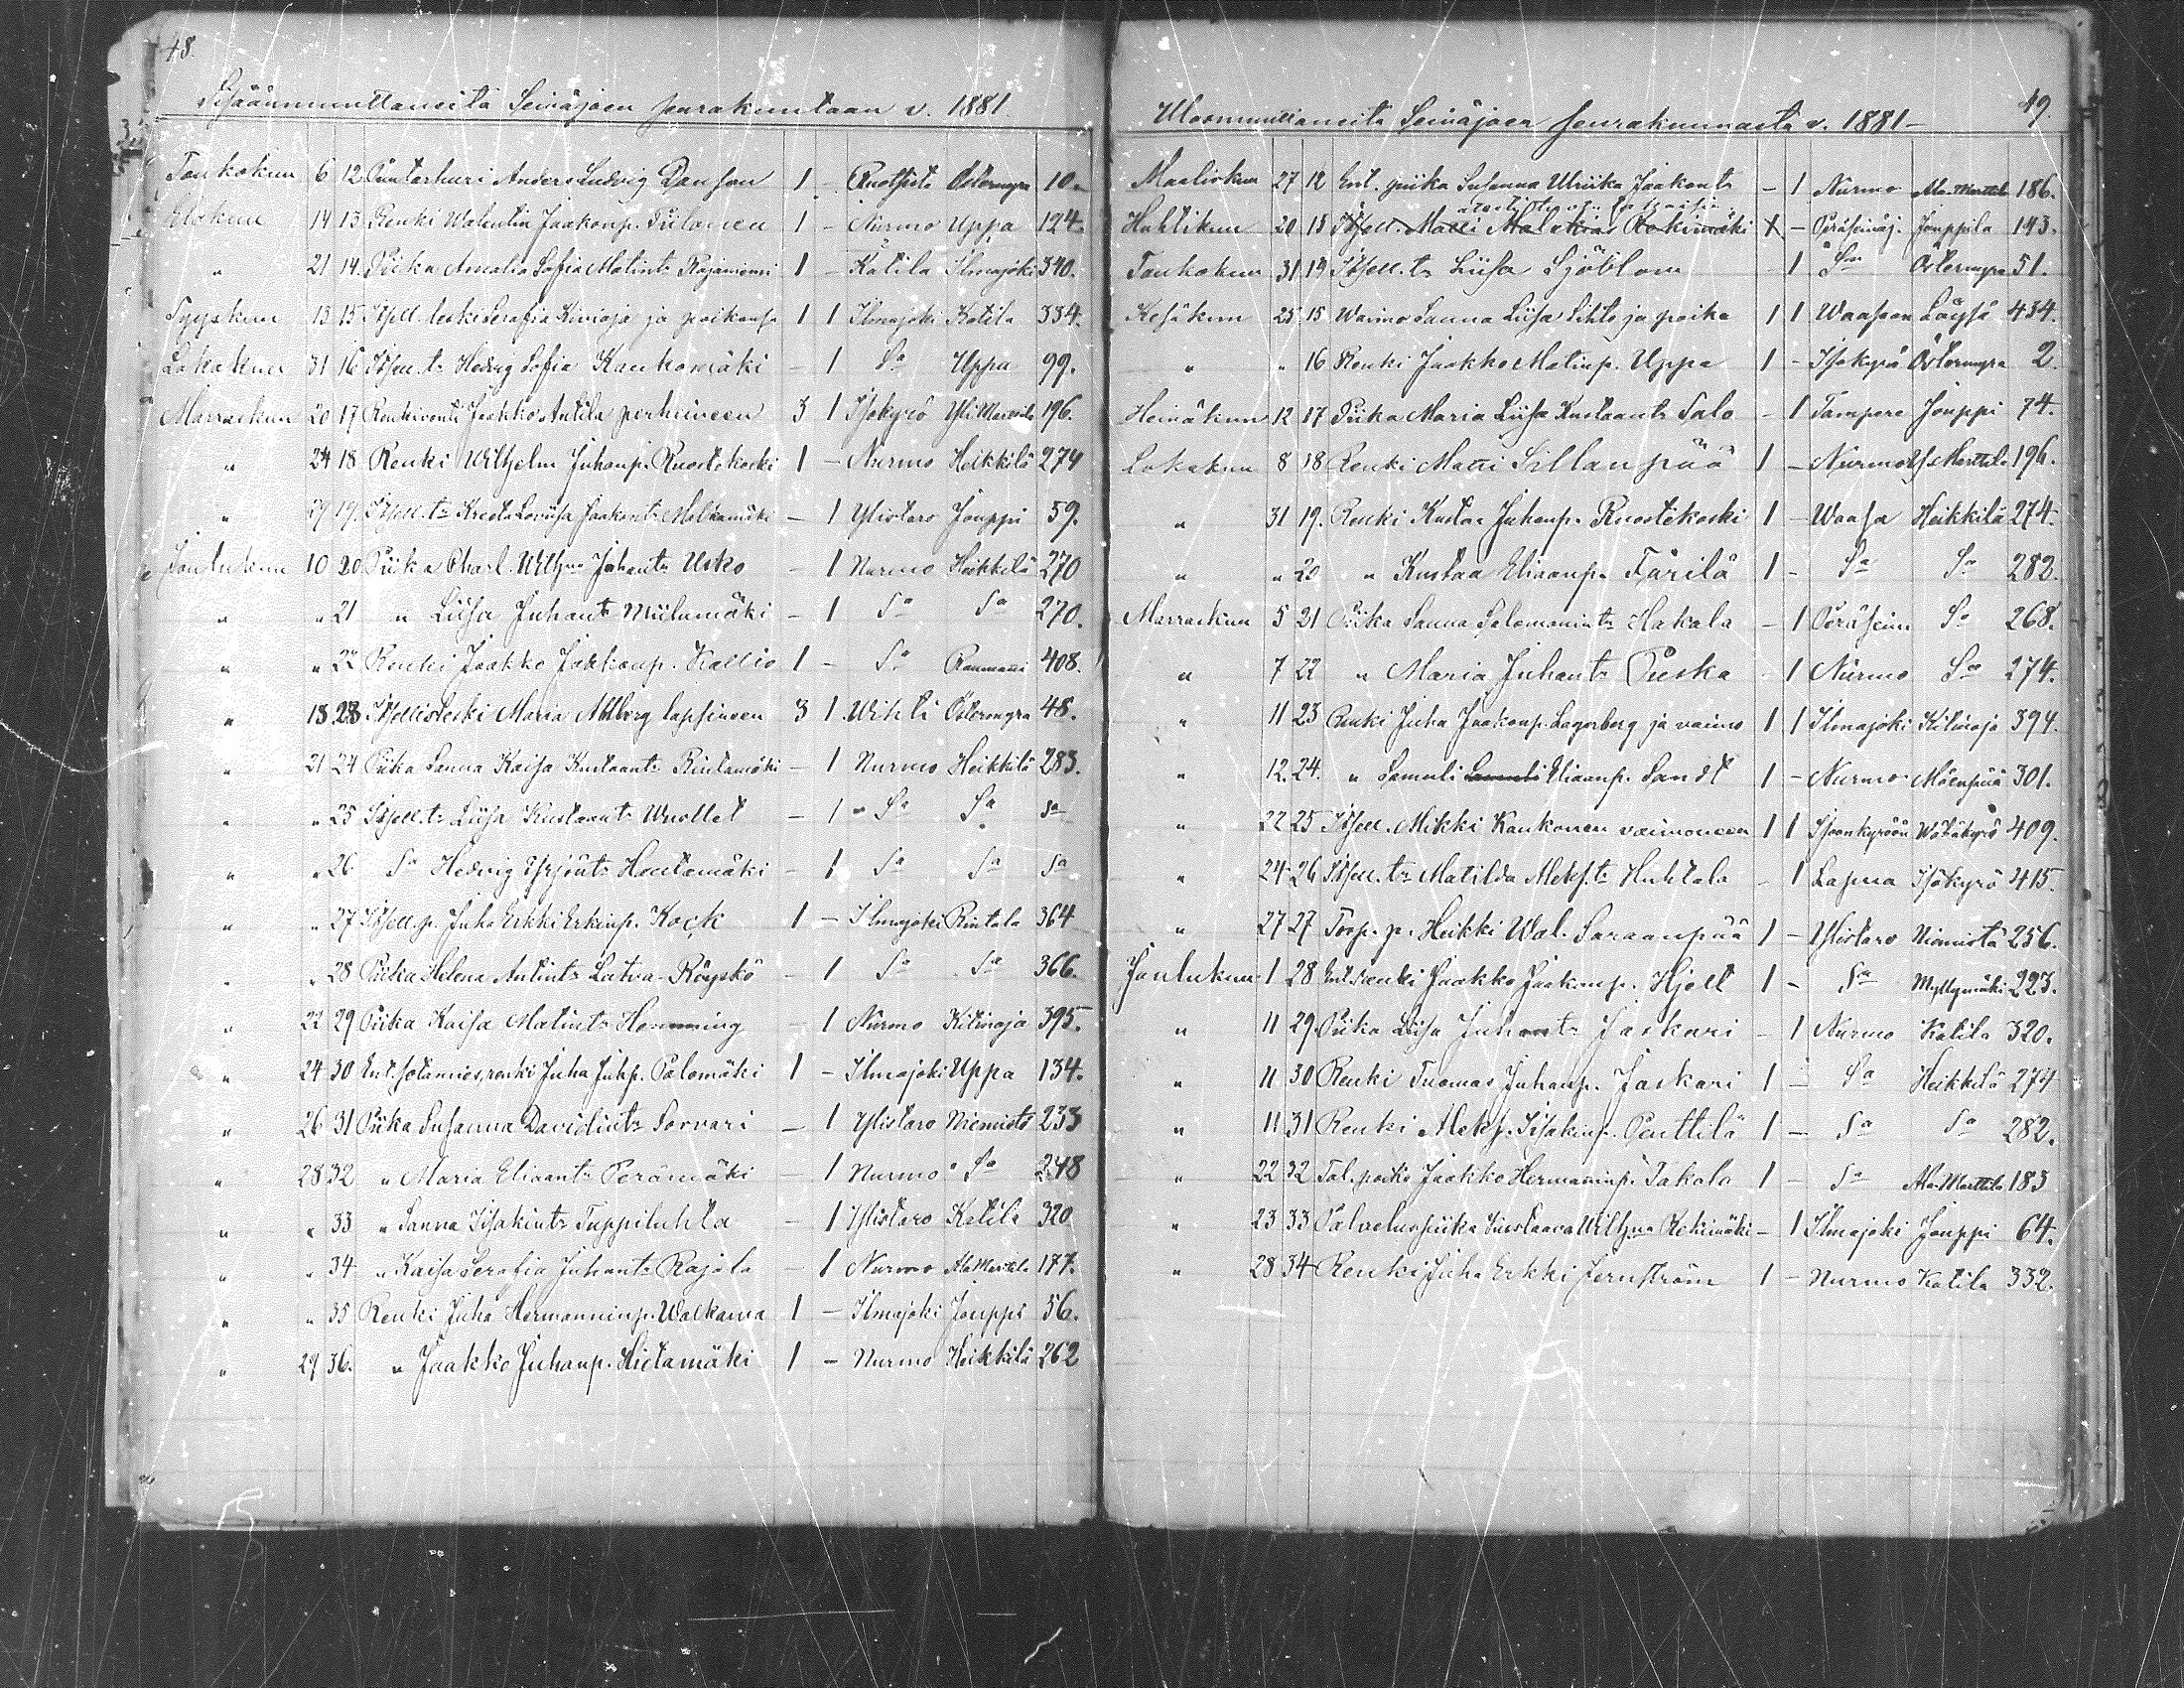 48.
Sisäänmuuttaneita Seinäjoen seurakuntaan v. 1881.
Toukokuu 6 12 Puutarhuri Anders Ludvig Danson 1 - Ruotsista Östermyra 10.
Elokuu 14 13 Renki Walentin Jaakonp. 1 - Nurmo Uppa 124.
" 21 14. Piika Amalia Sofia Matintr Rajaniemi 1 - Katila Ilmajoki 340.
Syyskuu 13 15 Itsell. leski Serafia Kivioja ja poikansa 1 1 Ilmajoki Katila 334.
Lokakuu 31 16 Itsen.tr Hedvig Sofia Kaukomäki - 1 Sa Uppa 99.
Marraskuu 20 17 Renkivouti Jaakko Antila perheineen 3 1 Isokyrö Yli Marttila 196.
" 24 18 Renki Wilhelm Juhanp. Ruostekoski 1 - Nurmo Heikkilä 274
" 29 19. Itsell.tr Kreeta Lovisa Jaakontr Malkamäki - 1 Ylistaro Jouppi 59.
Joulukuu 10 20 Piika Charl. Wilhna Juhantr Usko - 1 Nurmo Heikkilä 270
" " 21 " Liisa Juhantr Miilumäki - 1 Sa Sa 270.
" " 22 Renki Jaakko Jaakonp. Kallio 1 - Sa Raumanni 408.
" 13 23 Itsellisleski Maria Ahlberg lapsineen 3 1 Wihti Östermyra 48.
" 21 24 Piika Sanna Kaisa Kustaantr Rintamäki - 1 Nurmo Heikkilä 283.
" " 25 Itsell.tr Liisa Kustaantr Wuollet - 1 " Sa Sa Sa
" " 26 Sa Hedvig Yrjöntr Houtamäki - 1 Sa Sa Sa
" " 27 Itsell.p. Juha Erkki Erkinp. Kock 1 - Ilmajoki Rintala 364
" " 28 Piika Helena Antintr Latva-Röyskö - 1 Sa Sa 366.
" 22 29 Piika Kaisa Matintr Hemming - 1 Nurmo Kitinoja 395.
" 24 30 Ent. sotamies, renki Juha Juhp. Palomäki 1 - Ilmajoki Uppa 134.
" 26 31 Piika Susanna Davidintr Sorvari - 1 Ylistaro Niemistö 233
" 28 32 " Maria Eliaantr Perämäki - 1 Nurmo " Sa 248
" " 33 " Sanna Iisakintr Tuppiluhta - 1 Ylistaro Katila 320
" " 34 " Kaisa Serafia Juhantr Rajala - 1 Nurmo Ala Marttila 177.
" " 35 Renki Juha Hermanninp. Walkama 1 - Ilmajoki Jouppi 56.
" 29 36. " Jaakko Juhanp. Hietamäki 1 - Nurmo Heikkilä 262
49.
Ulosmuuttaneita Seinäjoen seurakunnasta v. 1881 -
Maaliskuu 27 12 Ent. piika Susanna Ulriika Jaakontr - 1 Nurmo Ala-Marttila 186.
Huhtikuu 20 13 Itsell. Matti Rekimäki - Peräseinäj. Jouppila 193.
Toukokuu 31 14 Itsell.tr Liisa Sjöblom - 1 Sa Östermyra 51.
Kesäkuu 25 15 Waimo Sanna Liisa Sihto ja poika 1 1 Waasaan 434.
" " 16 Renki Jaakko Matinp. Uppa 1 - Isokyrö Östermyra 2.
Heinäkuu 12 17 Piika Maria Liisa Kustaantr Salo - 1 Tampere Jouppi 74.
Lokakuu 8 18 Renki Matti Sillanpää 1 - Nurmo Yli Marttila 196.
" 31 19. Renki Kustaa Juhanp. Ruostekoski 1 - Waasa Heikkilä 274.
" " 20 " Kustaa Eliaanp. Färilä 1 - Sa Sa 282.
Marraskuu 5 21 Piika Sanna Salomonintr Hakala - 1 Peräsein Sa 268.
" 7 22 " Maria Juhantr Pieska - 1 Nurmo Sa 274.
" 11 23 Renki Juha Jaakonp. Lagerberg ja vaimo 1 1 Ilmajoki Kitinoja 394.
" 12. 24. " Samuli Samuli Eliaanp. Sandt 1 - Nurmo Mäenpää 301.
" 22 25 Itsell. Mikki Kaukonen vaimoneen 1 1 Isoonkyröön 409.
" 24 26 Itsell.tr Matilda Aleks.tr Huhtala - 1 Lapua Isokyrö 415.
" 27 27 Torp. p. Heikki Wal. Saraanpää 1 - Ylistaro Niemistä 256.
Joulukuu 1 28 Ent. renki Jaakko Jaakonp. Hjelt 1 - Sa Myllymäki 223.
" 11 29 Piika Liisa Juhantr Jaskari - 1 Nurmo Katila 320.
" 11 30 Renki Tuomas Juhanp. Jaskari 1 - Sa Heikkilä 274
" 11 31 Renki Aleks. Iisakinp. Penttilä 1 - Sa Sa 282.
" 22 32 Tal. poika Jaakko Hermanninp. Takala 1 - Sa Ala-Marttila 183
" 23 33 Palveluspiika Kustaava Wilhna Rekimäki - 1 Ilmajoki Jouppi 64.
" 28 34 Renki Juha Erkki Jernström 1 - Nurmo Katila 332.